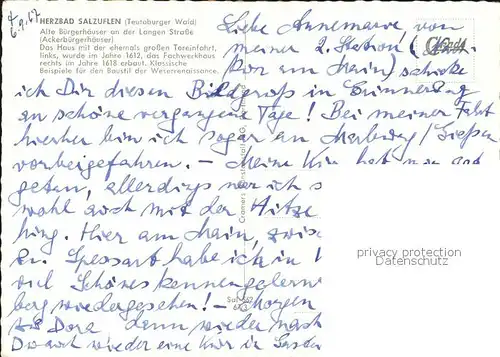 6.9.67
HERZBAD SALZUFLEN (Teutoburger Wald)
Alte Bürgerhäuser an der Langen Straße
(Ackerbürgerhäuser)
Das Haus mit der ehemals großen Toreinfahrt,
links, wurde im Jahre 1612, das Fachwerkhaus
rechts im Jahre 1618 erbaut. Klassische
Beispiele für den Baustil der Weserrenaissance.
Liebe Annemarie von
meiner 2. Station
am Main) schicke
ich Dir diesen Bildgruß in Erinnerung
an schöne vergangene Tage! Bei meiner Fahrt
hierher bin ich sogar an Marburg/Gießen
vorbeigefahren. – Meine Kur hat mir gut
getan, allerdings war ich s
wohl auch mit der Hitze
hing. Hier am Main, zwisc
en Spessart habe ich in
viel Schönes kennengelern
berg wiedergesehen! – Morgen
Dora, dann wieder nach
Du auch wieder eine Kur in
privacy protection
Datenschutz
Cramers Kunstanstalt KG, Dortmund